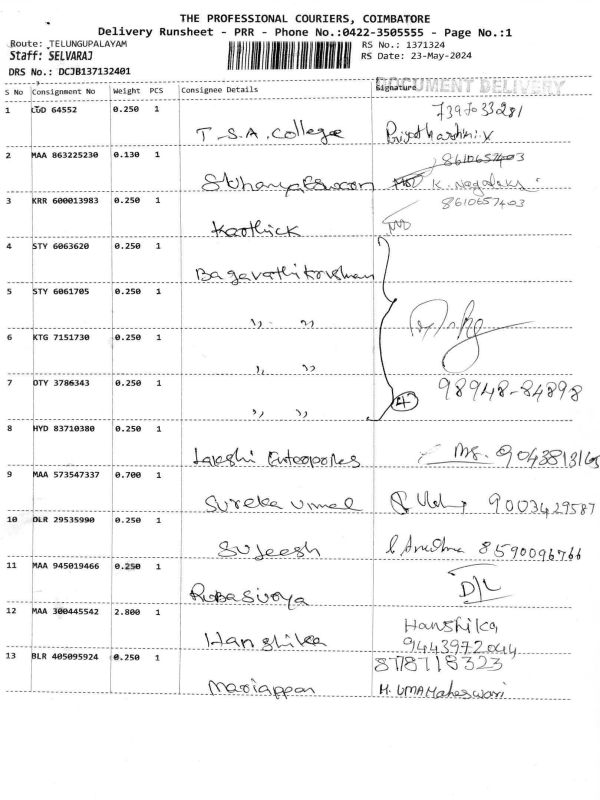 THE PROFESSIONAL COURIERS, COIMBATORE
Delivery Runsheet - PRR - Phone No.:0422-3505555 - Page No.:1
Route: TELUNGUPALAYAM RS No.: 1371324
Staff: SELVARAJ RS Date: 23-May-2024
DRS No.: DCJB137132401
DOCUMENT DELIVERY
S No Consignment No Weight PCS Consignee Details Signature
1 64552 0.250 1 T.S.A. College 73970 33281
2 MAA 863225230 0.130 1 8610657403 K. Nagalaksi
3 KRR 600013983 0.250 1 Karthick 8610657403
4 STY 6063620 0.250 1 Bagavathikrishnan
5 STY 6061705 0.250 1 ,, ,,
6 KTG 7151730 0.250 1 ,, ,,
7 OTY 3786343 0.250 1 ,, ,, 4 98948-84898
8 HYD 83710380 0.250 1 Ms. 9043813165
9 MAA 573547337 0.700 1 Sureka Vimal 9003429587
10 DLR 29535990 0.250 1 Sujeesh 8590096766
11 MAA 945019466 0.250 1 D/L
12 MAA 300445542 2.800 1 Hanshika Hanshika, 9443972044
13 BLR 405095924 0.250 1 Mariappan 8778718323
M. UMAMaheswari